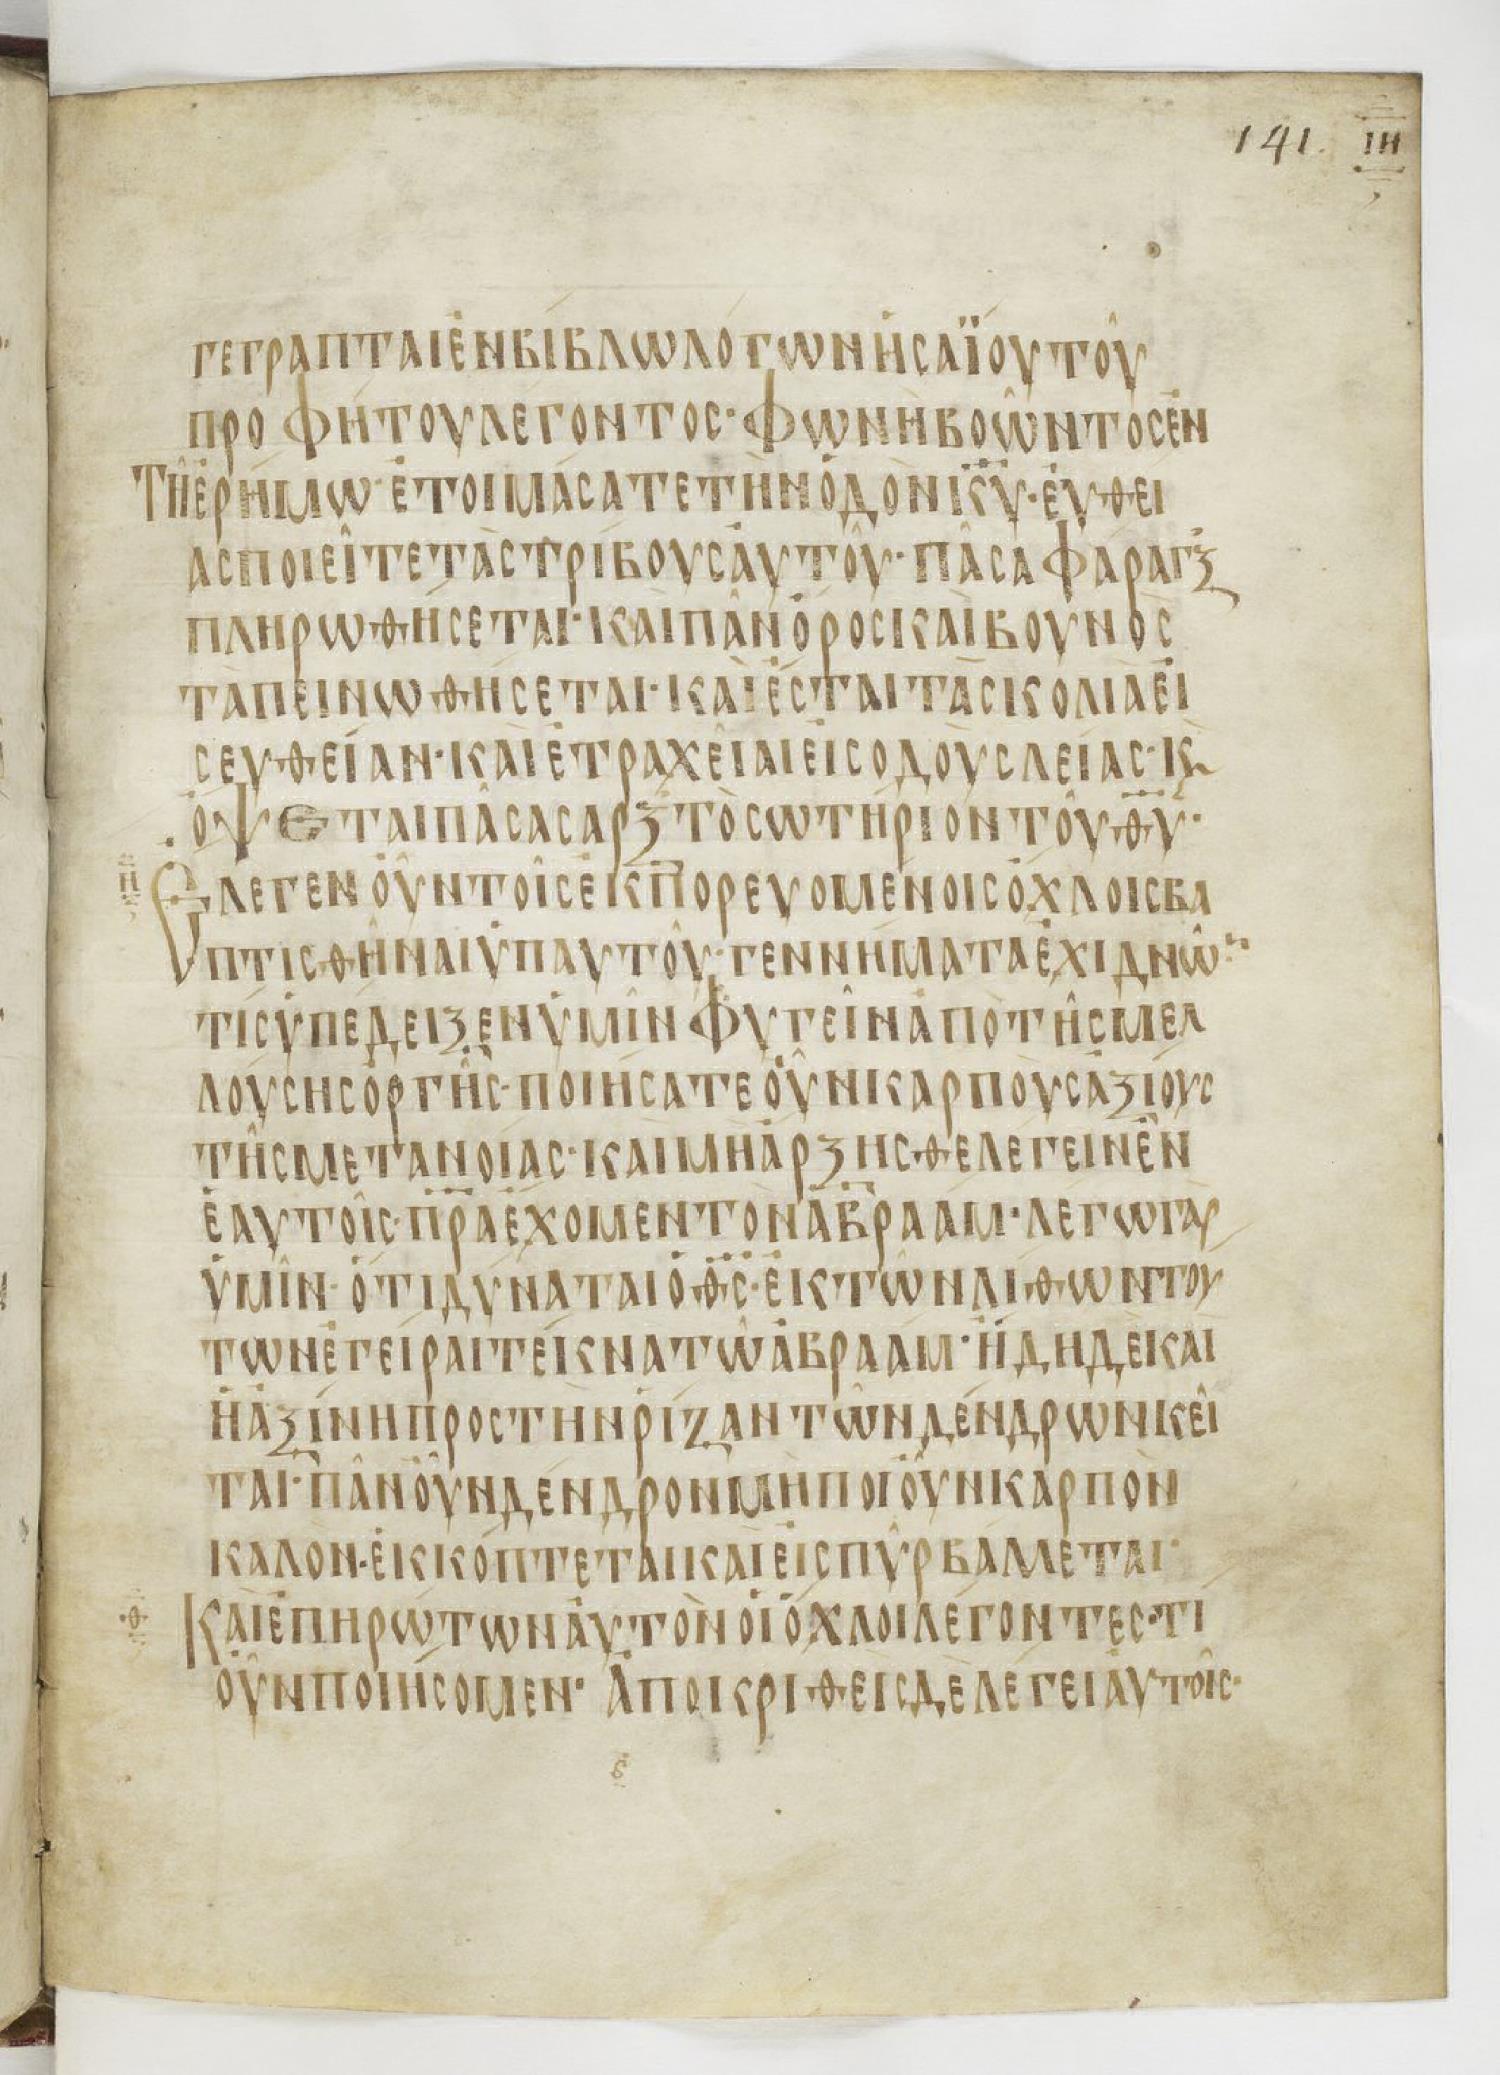 141. ΙΗ
ΓΕΓΡΑΠΤΑΙἘΝΒΊΒΛΩΛΌΓΩΝἩΣΑΪ́ΟΥΤΟΥ͂
ΠΡΟΦΉΤΟΥΛΈΓΟΝΤΟΣ· ΦΩΝῊΒΟΩ͂ΝΤΟΣἘΝ
ΤΗ͂ἘΡΉΜΩ· ἙΤΟΙΜΆΣΑΤΕΤῊΝὉΔῸΝΚΥ· ἘΥΘΕΊ
ΑΣΠΟΙΕΙ͂ΤΕΤᾺΣΤΡΊΒΟΥΣἈΥΤΟΥ͂· ΠΑ͂ΣΑΦΆΡΑΓΞ
ΠΛΗΡΩΘΉΣΕΤΑΙ· ΚΑῚΠΑ͂ΝὌΡΟΣΚΑῚΒΟΥΝῸΣ
ΤΑΠΕΙΝΩΘΉΣΕΤΑΙ· ΚΑῚἜΣΤΑΙΤᾺΣΚΟΛΙᾺἘΙ
ΣΕΥΘΕΊΑΝ· ΚΑῚἙΤΡΑΧΕΙ͂ΑΙἘΙΣΟΔΟῪΣΛΕΊΑΣ· Κ
ὌΨΕΤΑΙΠΑ͂ΣΑΣΑΡΞΤῸΣΩΤΉΡΙΟΝΤΟΥ͂ΘΥ·
Π ἜΛΕΓΕΝὈΥ͂ΝΤΟΙ͂ΣἘΚΠΟΡΕΥΟΜΈΝΟΙΣὌΧΛΟΙΣΒΑ
ΠΤΙΣΘΗ͂ΝΑΙὙΠΑΥΤΟΥ͂· ΓΕΝΝΉΜΑΤΑἘΧΙΔΝΩ͂Ν
ΤΊΣὙΠΈΔΕΙΞΕΝὙΜΙ͂ΝΦΥΓΕΙ͂ΝἈΠῸΤΗ͂ΣΜΕΛ
ΛΟΎΣΗΣὈΡΓΗ͂Σ· ΠΟΙΉΣΑΤΕὈΥ͂ΝΚΑΡΠΟῪΣἈΞΊΟΥΣ
ΤΗ͂ΣΜΕΤΑΝΟΊΑΣ· ΚΑῚΜῊἌΡΞΗΣΘΕΛΈΓΕΙΝἘΝ
ἙΑΥΤΟΙ͂Σ· ΠΡΑἜΧΟΜΕΝΤῸΝἈΒΡΑΆΜ· ΛΈΓΩΓᾺΡ
ὙΜΙ͂Ν· ὍΤΙΔΎΝΑΤΑΙὉΘΣ· ἘΚΤΩ͂ΝΛΊΘΩΝΤΟΎ
ΤΩΝἘΓΕΙ͂ΡΑΙΤΈΚΝΑΤΩ͂ἈΒΡΑΆΜ· ἬΔΗΔῈΚΑῚ
ἩἈΞΊΝΗΠΡῸΣΤῊΝῬΊΖΑΝΤΩ͂ΝΔΈΝΔΡΩΝΚΕΙ͂
ΤΑΙ· ΠΑ͂ΝὈΥ͂ΝΔΈΝΔΡΟΝΜῊΠΟΙΟΥ͂ΝΚΑΡΠῸΝ
ΚΑΛῸΝ· ἘΚΚΌΠΤΕΤΑΙΚΑῚἘΙΣΠΥ͂ΡΒΆΛΛΕΤΑΙ·
Θ ΚΑῚἘΠΗΡΏΤΩΝἈΥΤῸΝΟἹὌΧΛΟΙΛΈΓΟΝΤΕΣ· ΤΊ
ὈΥ͂ΝΠΟΙΉΣΟΜΕΝ· ἈΠΟΚΡΙΘΕῚΣΔῈΛΈΓΕΙἈΥΤΟΙ͂Σ·